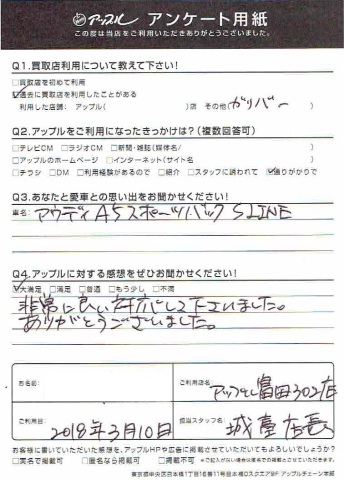 アップル アンケート用紙
この度は当店をご利用いただきありがとうございました。
Q1.買取店利用について教えて下さい!
□買取店を初めて利用
☑過去に買取店を利用したことがある
利用した店舗: アップル( )店 その他(ガリバー )
Q2.アップルをご利用になったきっかけは?(複数回答可)
□テレビCM □ラジオCM □新聞・雑誌(媒体名/ )
□アップルのホームページ □インターネット(サイト名 )
□チラシ □DM □利用経験があるので □紹介 □スタッフに誘われて ☑通りがかりで
Q3.あなたと愛車との思い出をお聞かせください!
車名: アウディA5スポーツバック SLINE
Q4.アップルに対する感想をぜひお聞かせください!
☑大満足 □満足 □普通 □もう少し □不満
非常に良い対応して下さいました。
ありがとうございました。
お名前:
ご利用店名: アップル富田302店
ご利用日: 2018年3月10日
担当スタッフ名: 城 店長
お客様に書いていただいた感想を、アップルHPや広告に掲載させていただいてもよろしいでしょうか?
□実名で掲載可 □匿名なら掲載可 □掲載不可 ※ご記入がない場合は匿名での掲載とさせていただきます。
東京都中央区日本橋1丁目16番11号日本橋DスクエアBF アップルチェーン本部